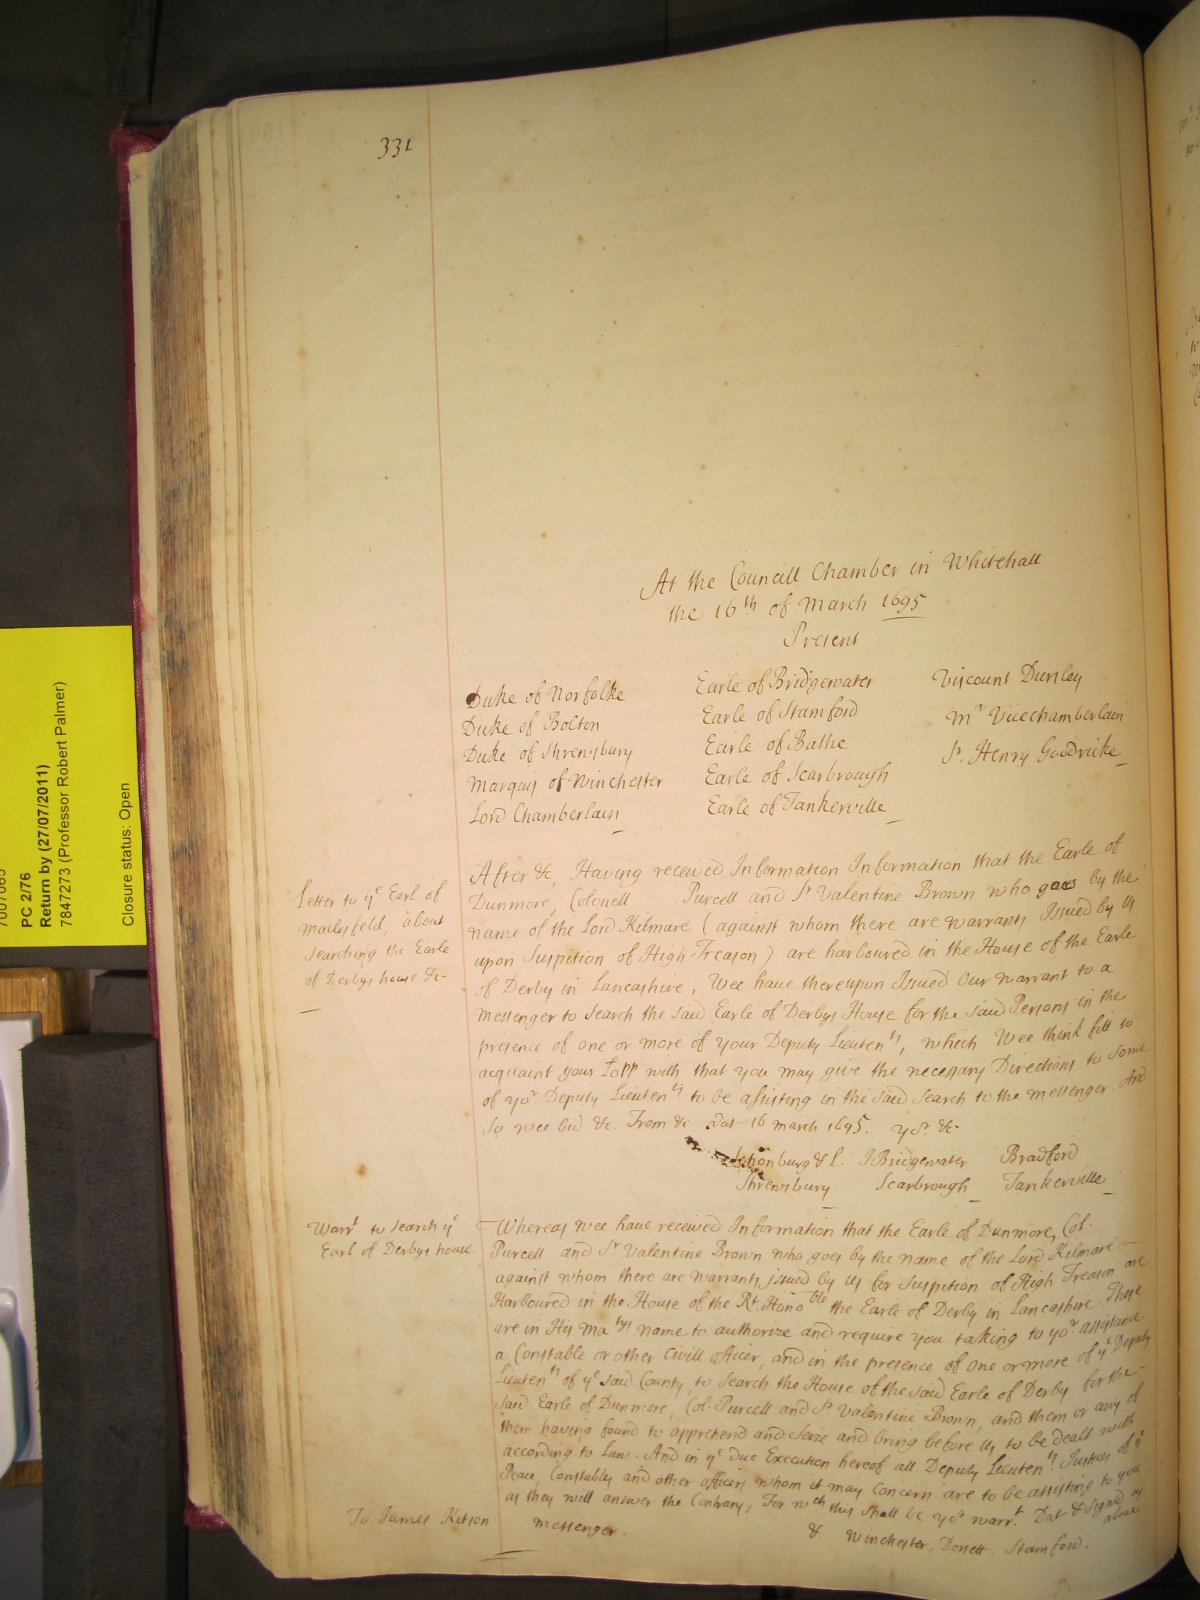 331
At the Councill Chamber in Whitehall
the 16th of March 1695
Present
Duke of Norfolke
Duke of Bolton
Duke of Shrewsbury
Marquis of Winchester
Lord Chamberlain
Earle of Bridgewater
Earle of Stamford
Earle of Bathe
Earle of Scarbrough
Earle of Tankerville
Viscount Dursley
Mr Vicechamberlain
Sr. Henry Goodricke
Letter to ye Earl of
Maclesfeld, about
searching the Earle
of Derbys house &c
After &c, Having received Information Information that the Earle of
Dunmore, Colonell Purcell and Sr Valentine Brown who goes by the
name of the Lord Kilmare (against whom there are warrants Issued by us
upon Suspition of High Treason) are harboured in the House of the Earle
of Derby in Lancashire, Wee have thereupon Issued Our warrant to a
Messenger to Search the said Earle of Derbys House for the said Persons in the
presence of one or more of your Deputy Lieutents, which Wee think fitt to
acquaint your Lopp with that you may give the necessary Directions to some
of yor Deputy Lieutents to be assisting in the said Search to the messenger. And
So wee bid &c. From &c Dat 16 March 1695. yor &c
Schonburg & L. J Bridgewater Bradford
Shrewsbury Scarbrough Tankerville
Warrt to search ye
Earl of Derbys house
Whereas wee have received Information that the Earle of Dunmore, Col.
Purcell and Sr Valentine Brown who goes by the name of the Lord Kilmare
against whom there are warrants issued by us for Suspition of High Treason are
Harboured in the House of the Rt Honoble the Earle of Derby in Lancashire. These
are in His Matys name to authorize and require you taking to yor assistance
a Constable or other Civill officer, and in the presence of one or more of ye Deputy
Lieutents of ye said County to Search the House of the said Earle of Derby for the
said Earle of Dunmore, Col: Purcell and Sr Valentine Brown, and them or any of
them having found to apprehend and seize and bring before us to be dealt with
according to Law. And in ye due Execution hereof all Deputy Lieutents. Justices of ye
Peace, Constables and other officers whom it may Concern are to be assisting to you
as they will answer the Contrary, For wch this shall be yor warrt. Dat & Signed as
above
To James Kitson messenger.
&. Winchester, Dorsett. Stamford.
PC 2/76
Return by (27/07/2011)
7847273 (Professor Robert Palmer)
Closure status: Open